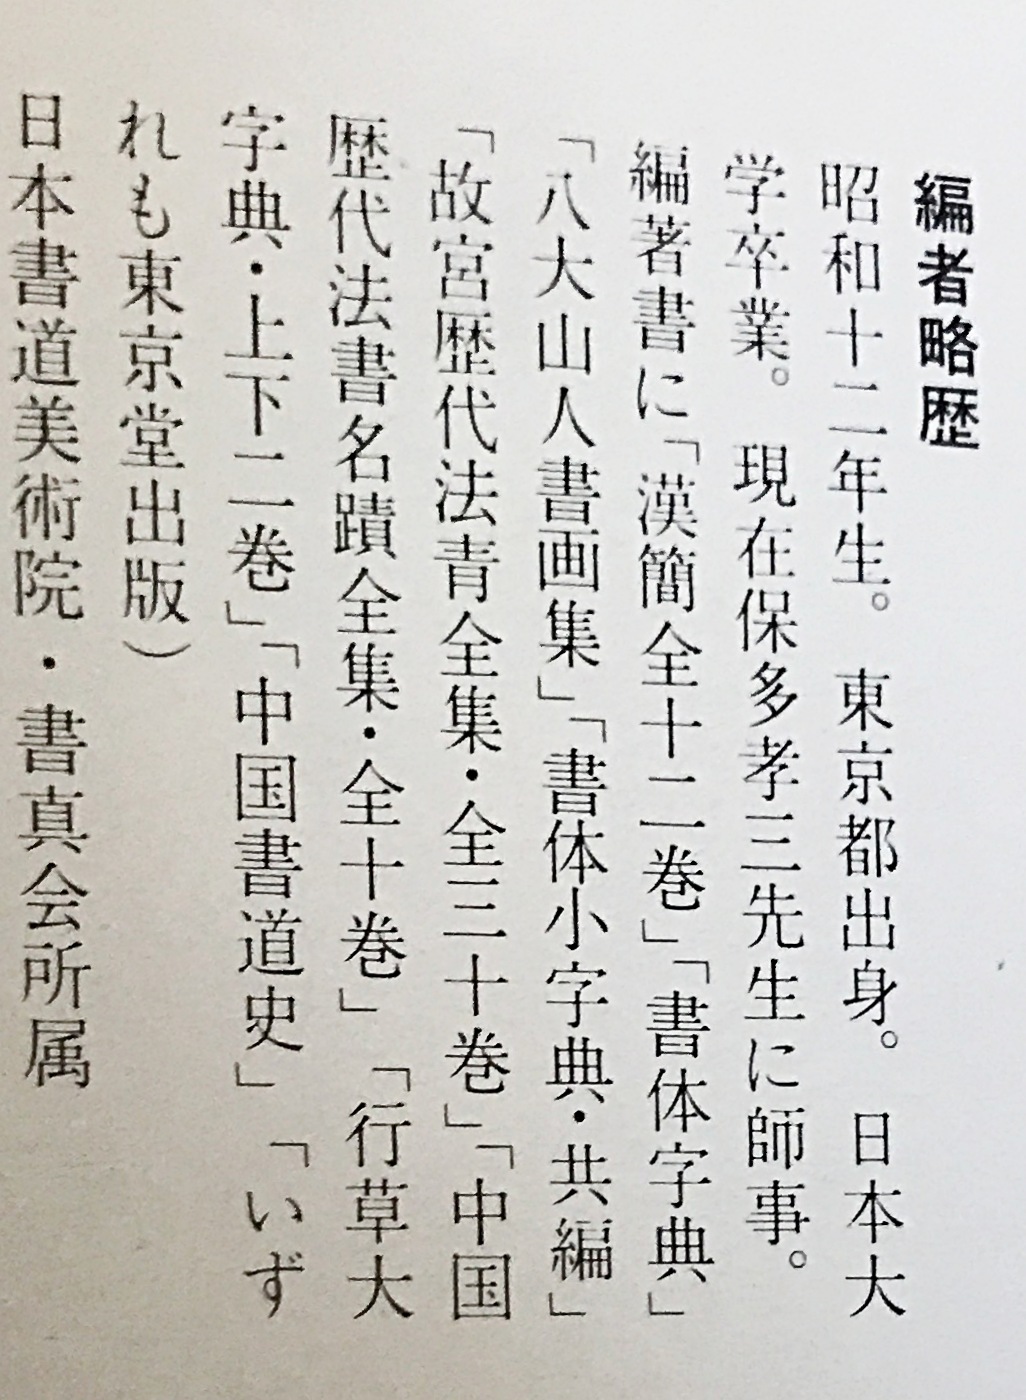 編者略歴
昭和十二年生。　東京都出身。　日本大
学卒業。　現在保多孝三先生に師事。
編著書に「漢簡全十二巻」「書体字典」
「八大山人書画集」「書体小字典・共編」
「故宮歴代法青全集・全三十巻」「中国
歴代法書名蹟全集・全十巻」　「行草大
字典・上下二巻」「中国書道史」　「いず
れも東京堂出版）
日本書道美術院・書真会所属